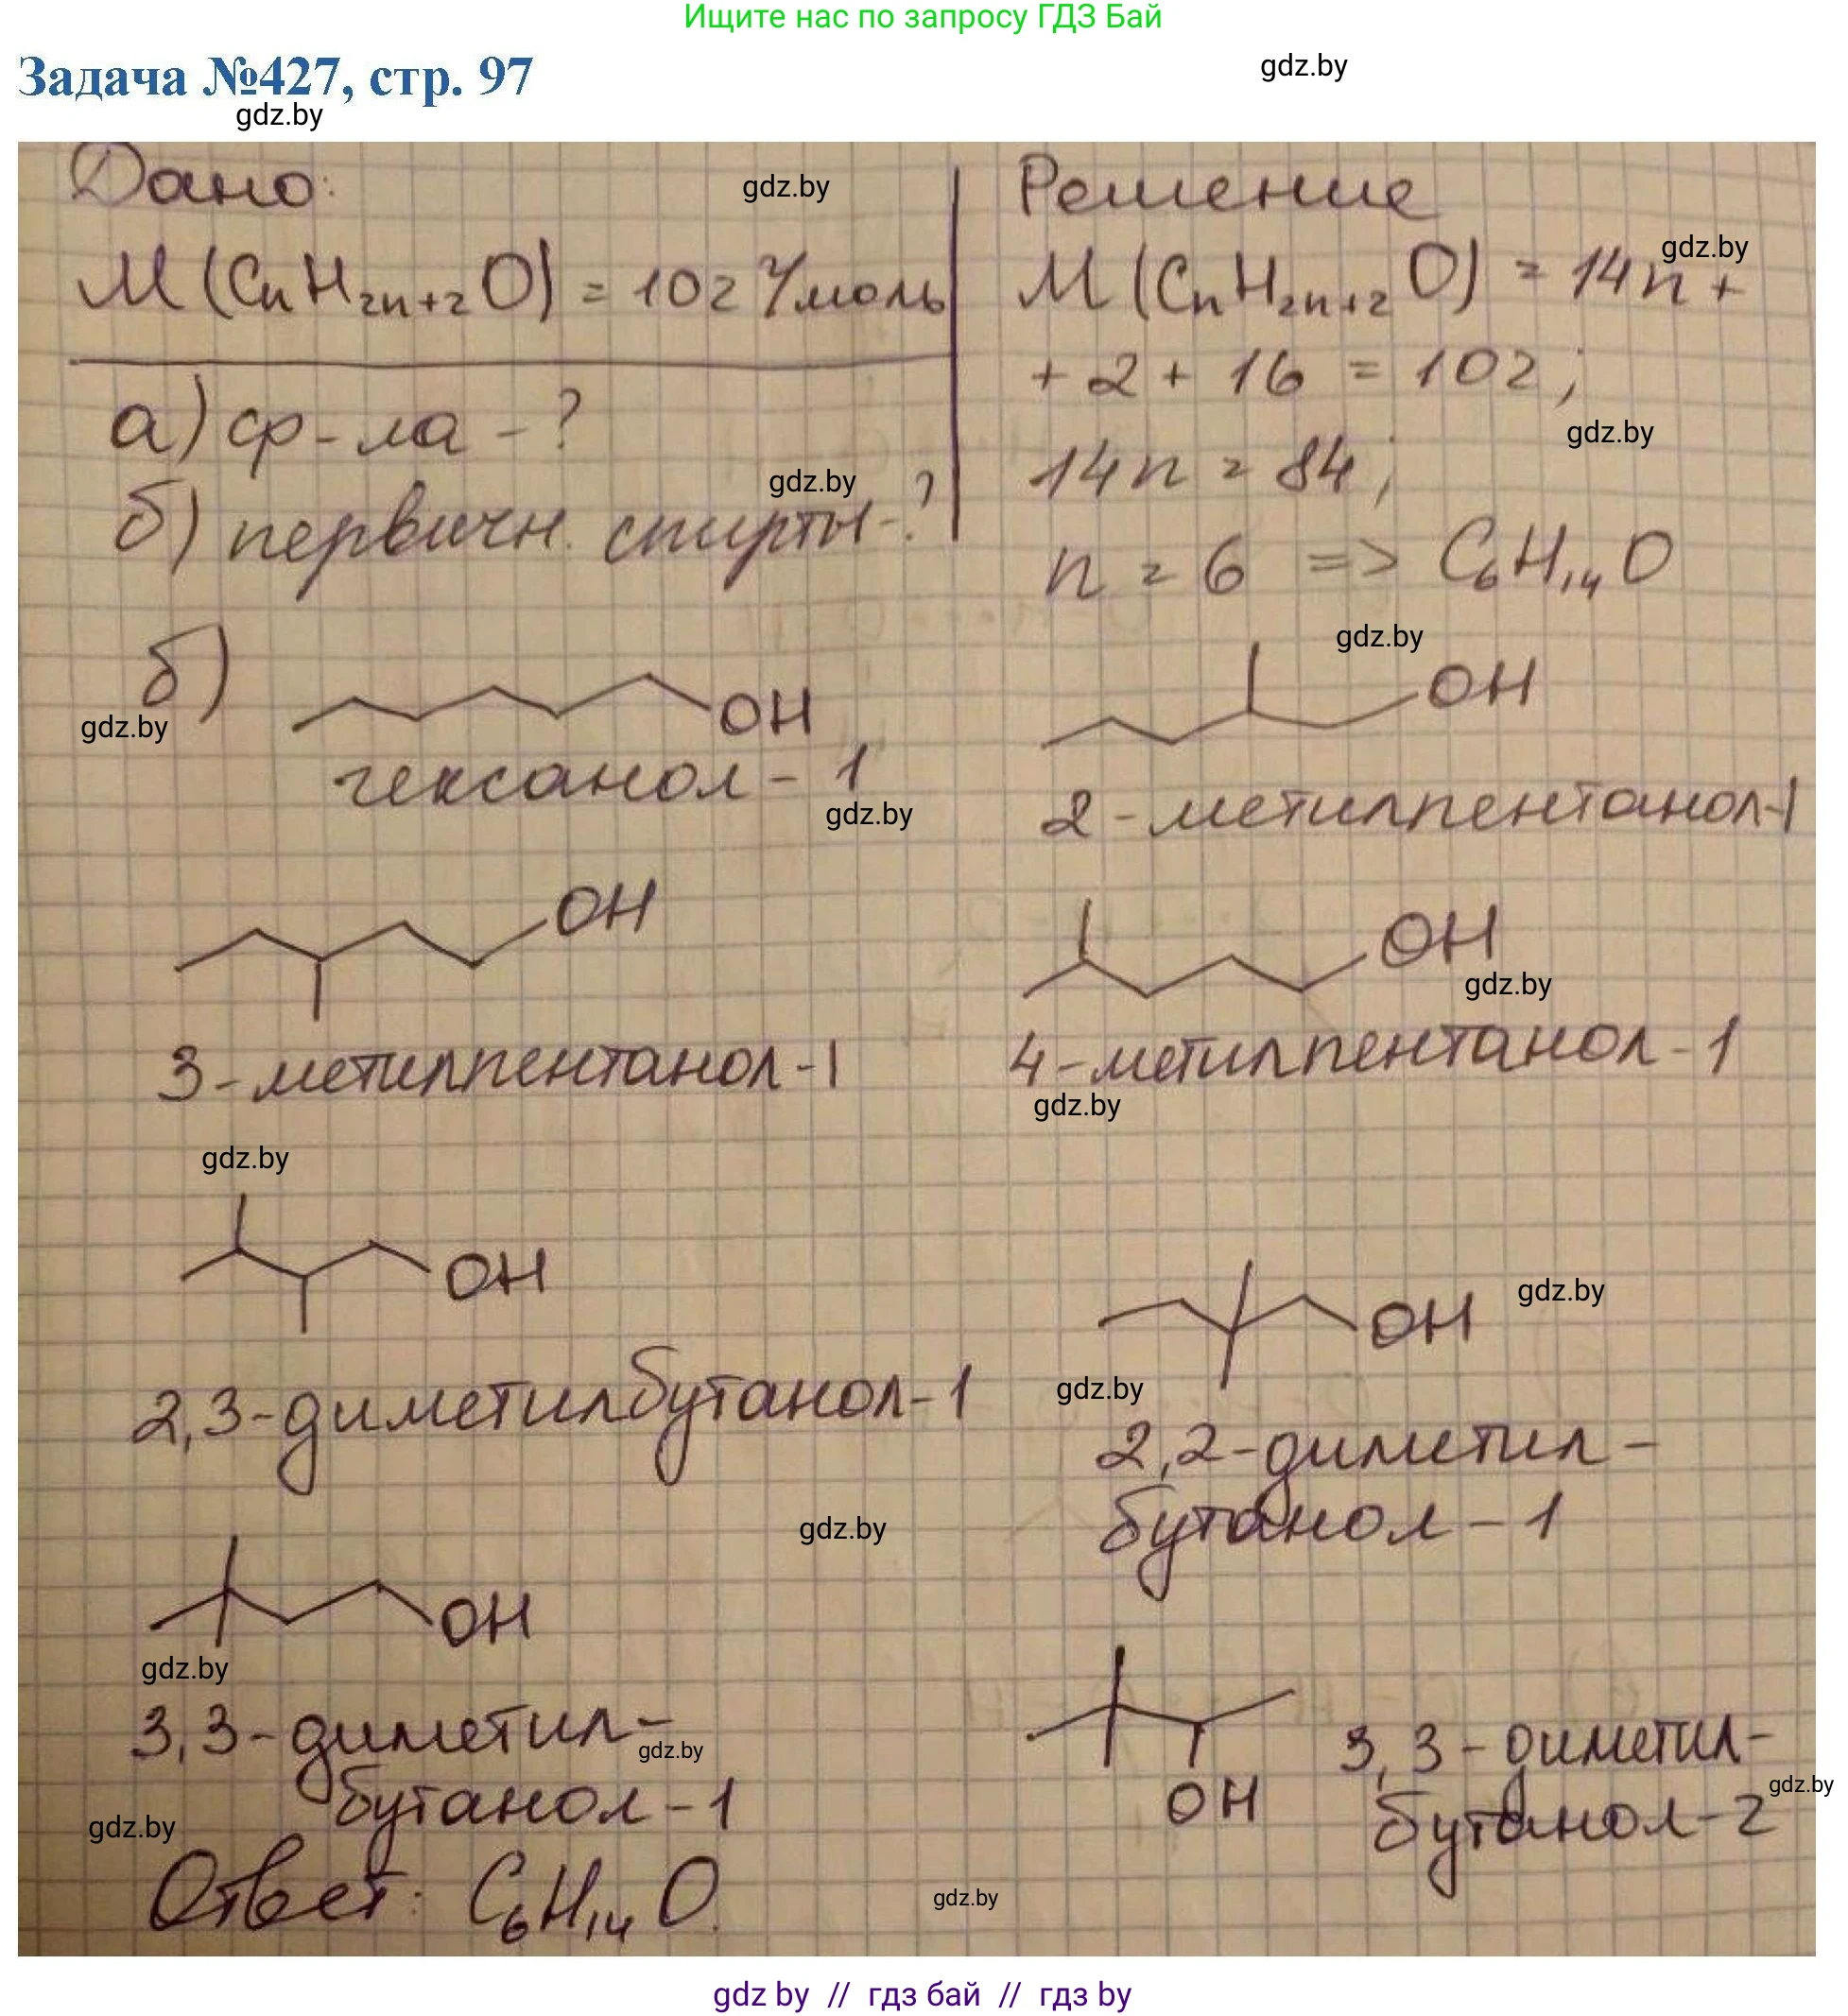 Ищите нас по запросу ГДЗ Бай
Задача №427, стр. 97
gdz.by
gdz.by
Дано:
gdz.by
M(CnH2n+2O) = 102 г/моль
а) ф-ла - ?
gdz.by
б) первичн. спирты - ?
Решение
gdz.by
M(CnH2n+2O) = 14n +
+ 2 + 16 = 102;
gdz.by
14n = 84;
n = 6 => C6H14O
б)
gdz.by
OH
гексанол - 1
gdz.by
gdz.by
OH
2 - метилпентанол-1
OH
3 - метилпентанол - 1
OH
gdz.by
4 - метилпентанол - 1
gdz.by
gdz.by
OH
2,3 - диметилбутанол - 1
OH
gdz.by
gdz.by
2,2 - диметил -
бутанол - 1
gdz.by
OH
gdz.by
3,3 - диметил -
gdz.by
бутанол - 1
gdz.by
OH
3,3 - диметил -
gdz.by
бутанол - 2
Ответ: C6H14O.
gdz.by
gdz by // гдз бай // гдз by